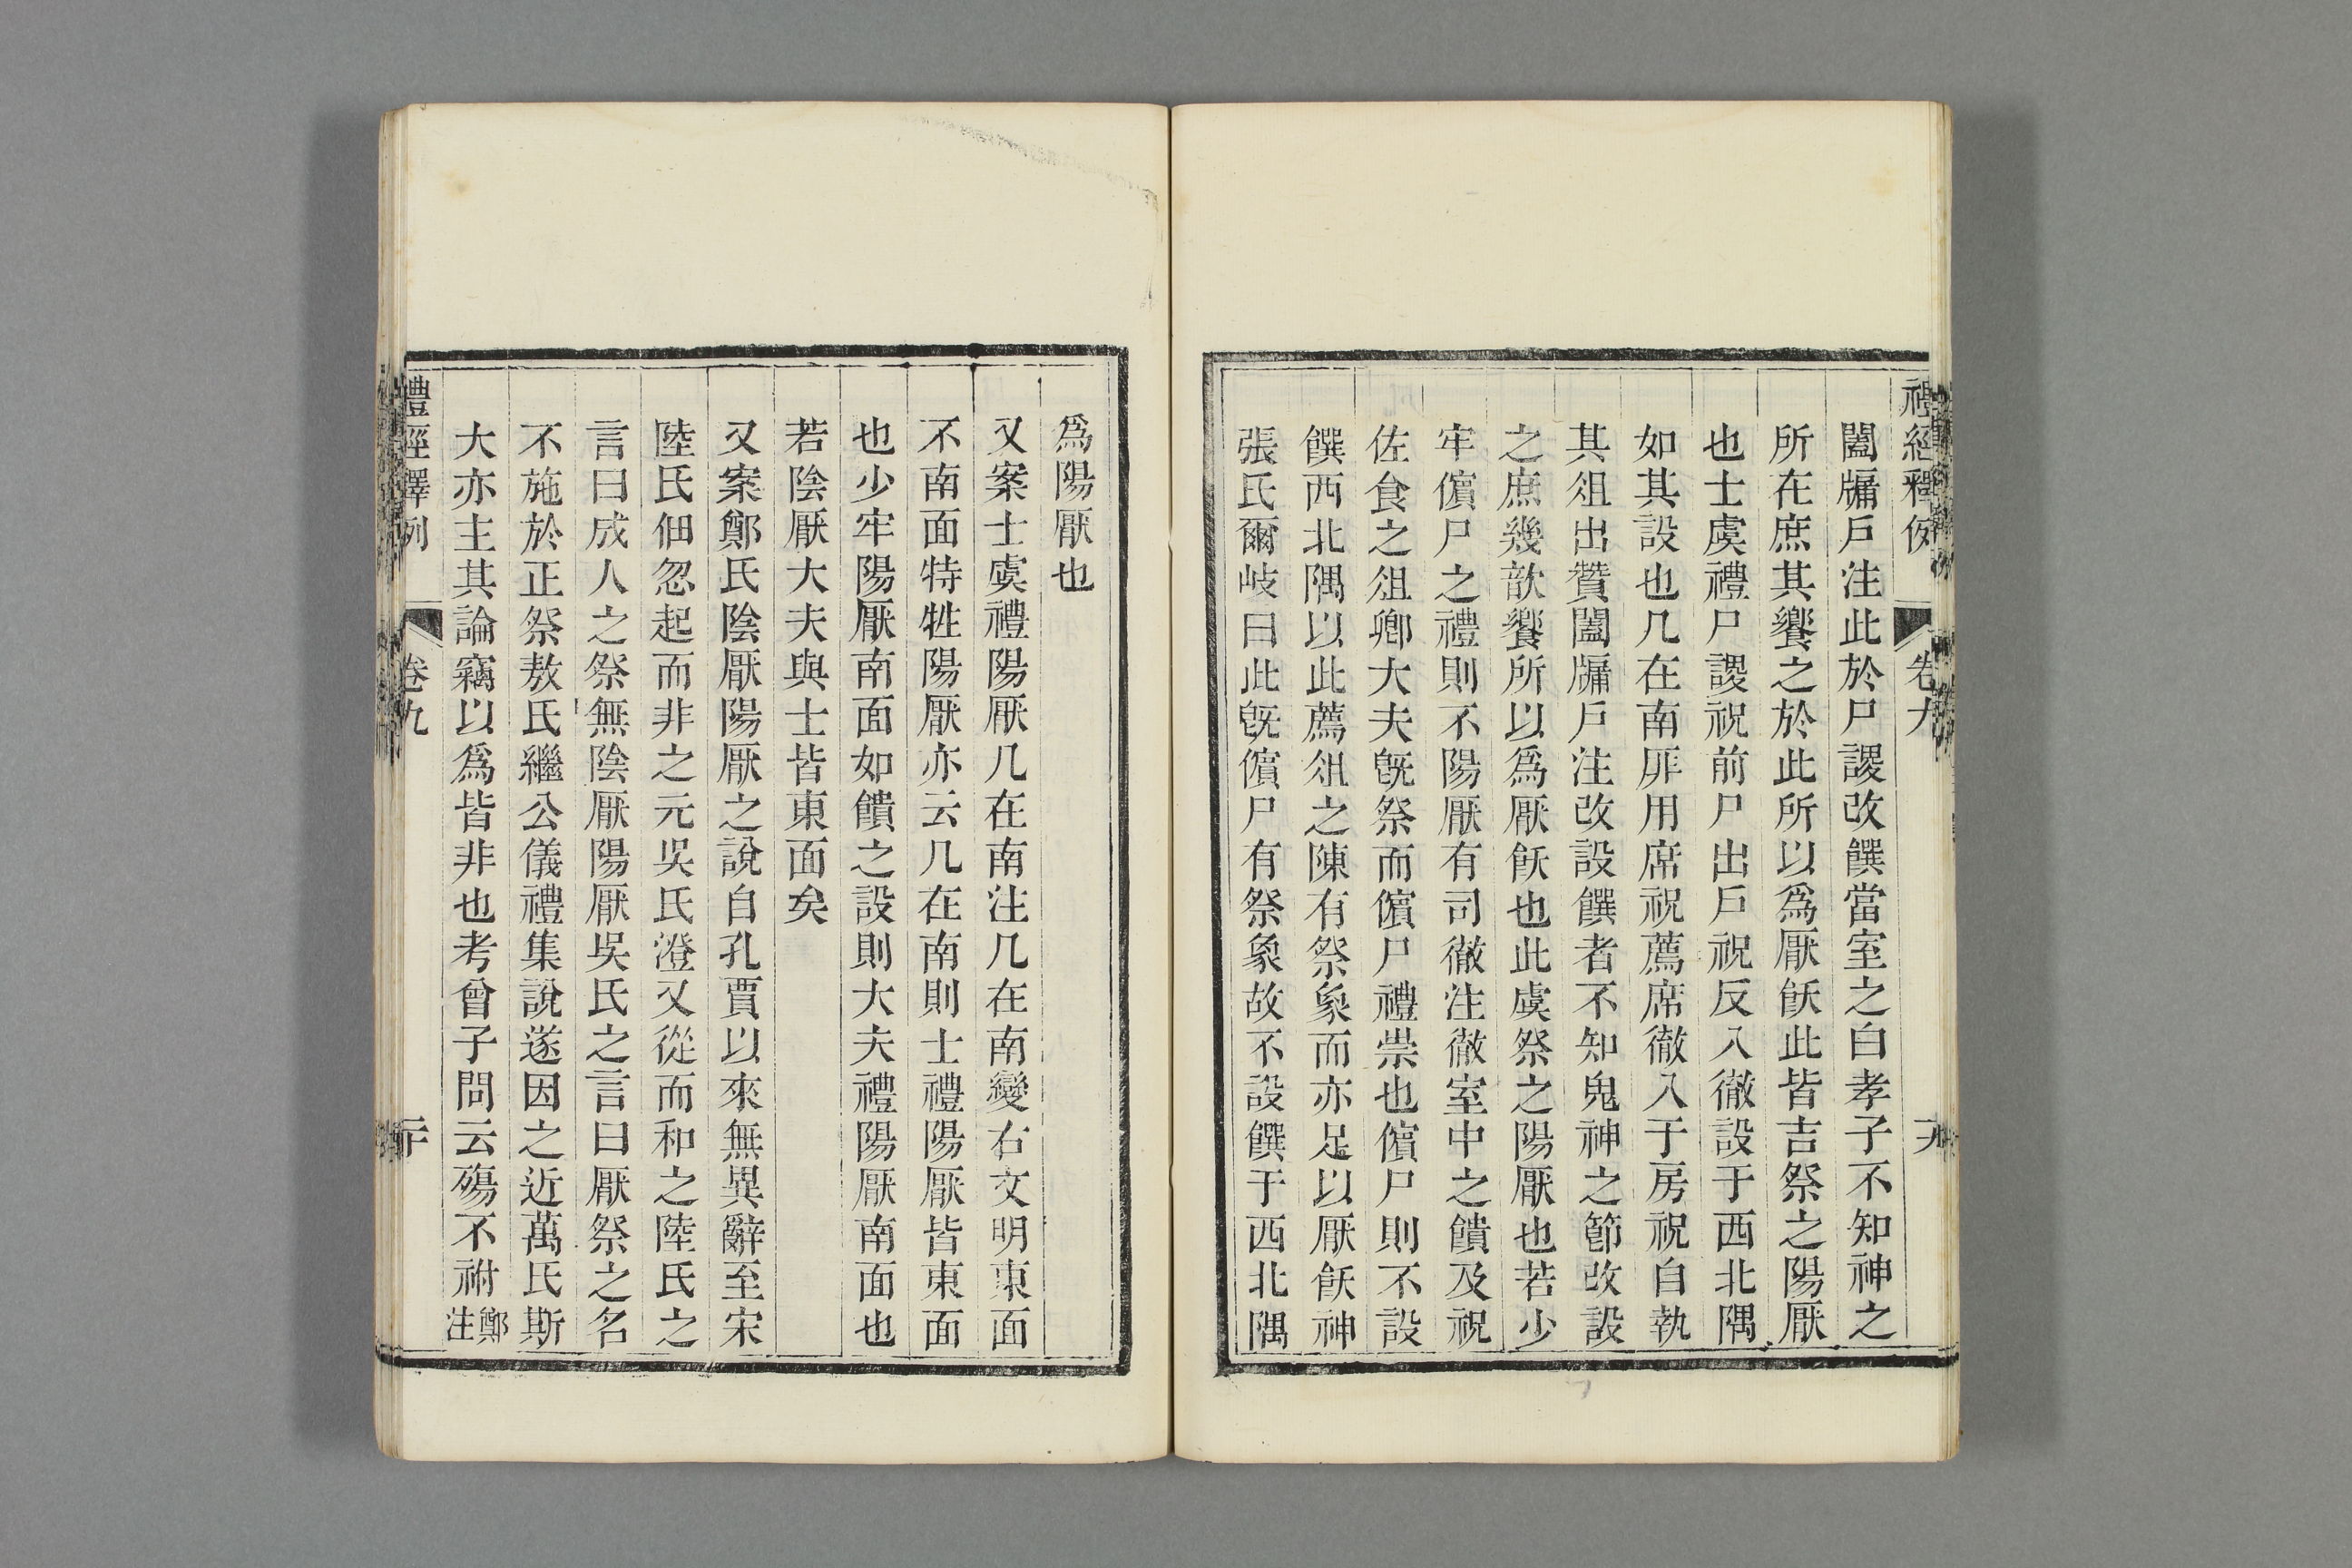 禮經釋例 卷九 十九
闔牖戶注此於尸謖改饌當室之白孝子不知神之
所在庶其饗之於此所以爲厭飫此皆吉祭之陽厭
也士虞禮尸謖祝前尸出戶祝反入徹設于西北隅
如其設也几在南厞用席祝薦席徹入于房祝自執
其俎出贊闔牖戶注改設饌者不知鬼神之節改設
之庶幾歆饗所以爲厭飫也此虞祭之陽厭也若少
牢儐尸之禮則不陽厭有司徹注徹室中之饋及祝
佐食之俎卿大夫旣祭而儐尸禮崇也儐尸則不設
饌西北隅以此薦俎之陳有祭象而亦足以厭飫神
張氏爾岐曰此旣儐尸有祭象故不設饌于西北隅
爲陽厭也
又案士虞禮陽厭几在南注几在南變右文明東面
不南面特牲陽厭亦云几在南則士禮陽厭皆東面
也少牢陽厭南面如饋之設則大夫禮陽厭南面也
若陰厭大夫與士皆東面矣
又案鄭氏陰厭陽厭之說自孔賈以來無異辭至宋
陸氏佃忽起而非之元吳氏澄又從而和之陸氏之
言曰成人之祭無陰厭陽厭吳氏之言曰厭祭之名
不施於正祭敖氏繼公儀禮集說遂因之近萬氏斯
大亦主其論竊以爲皆非也考曾子問云殤不祔鄭注
禮經釋例 卷九 二十